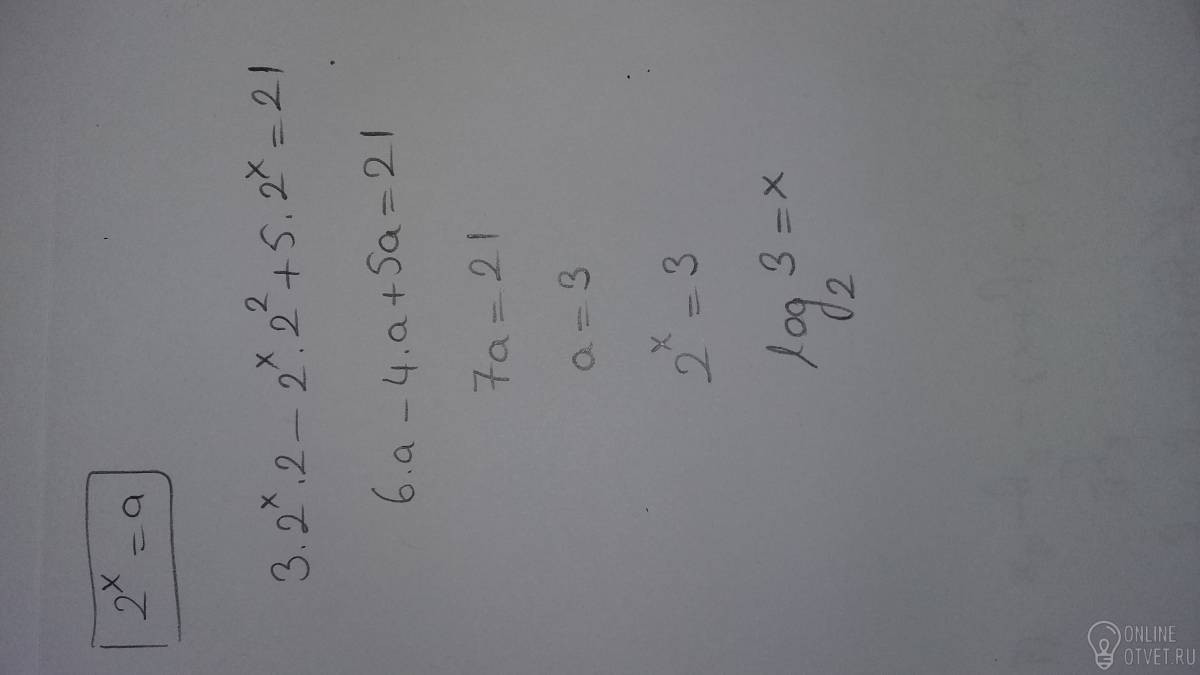 2ˣ = a
3·2ˣ·2 − 2ˣ·2² + 5·2ˣ = 21
6·a − 4·a + 5a = 21
7a = 21
a = 3
2ˣ = 3
log₂ 3 = x
ONLINE
OTVET.RU